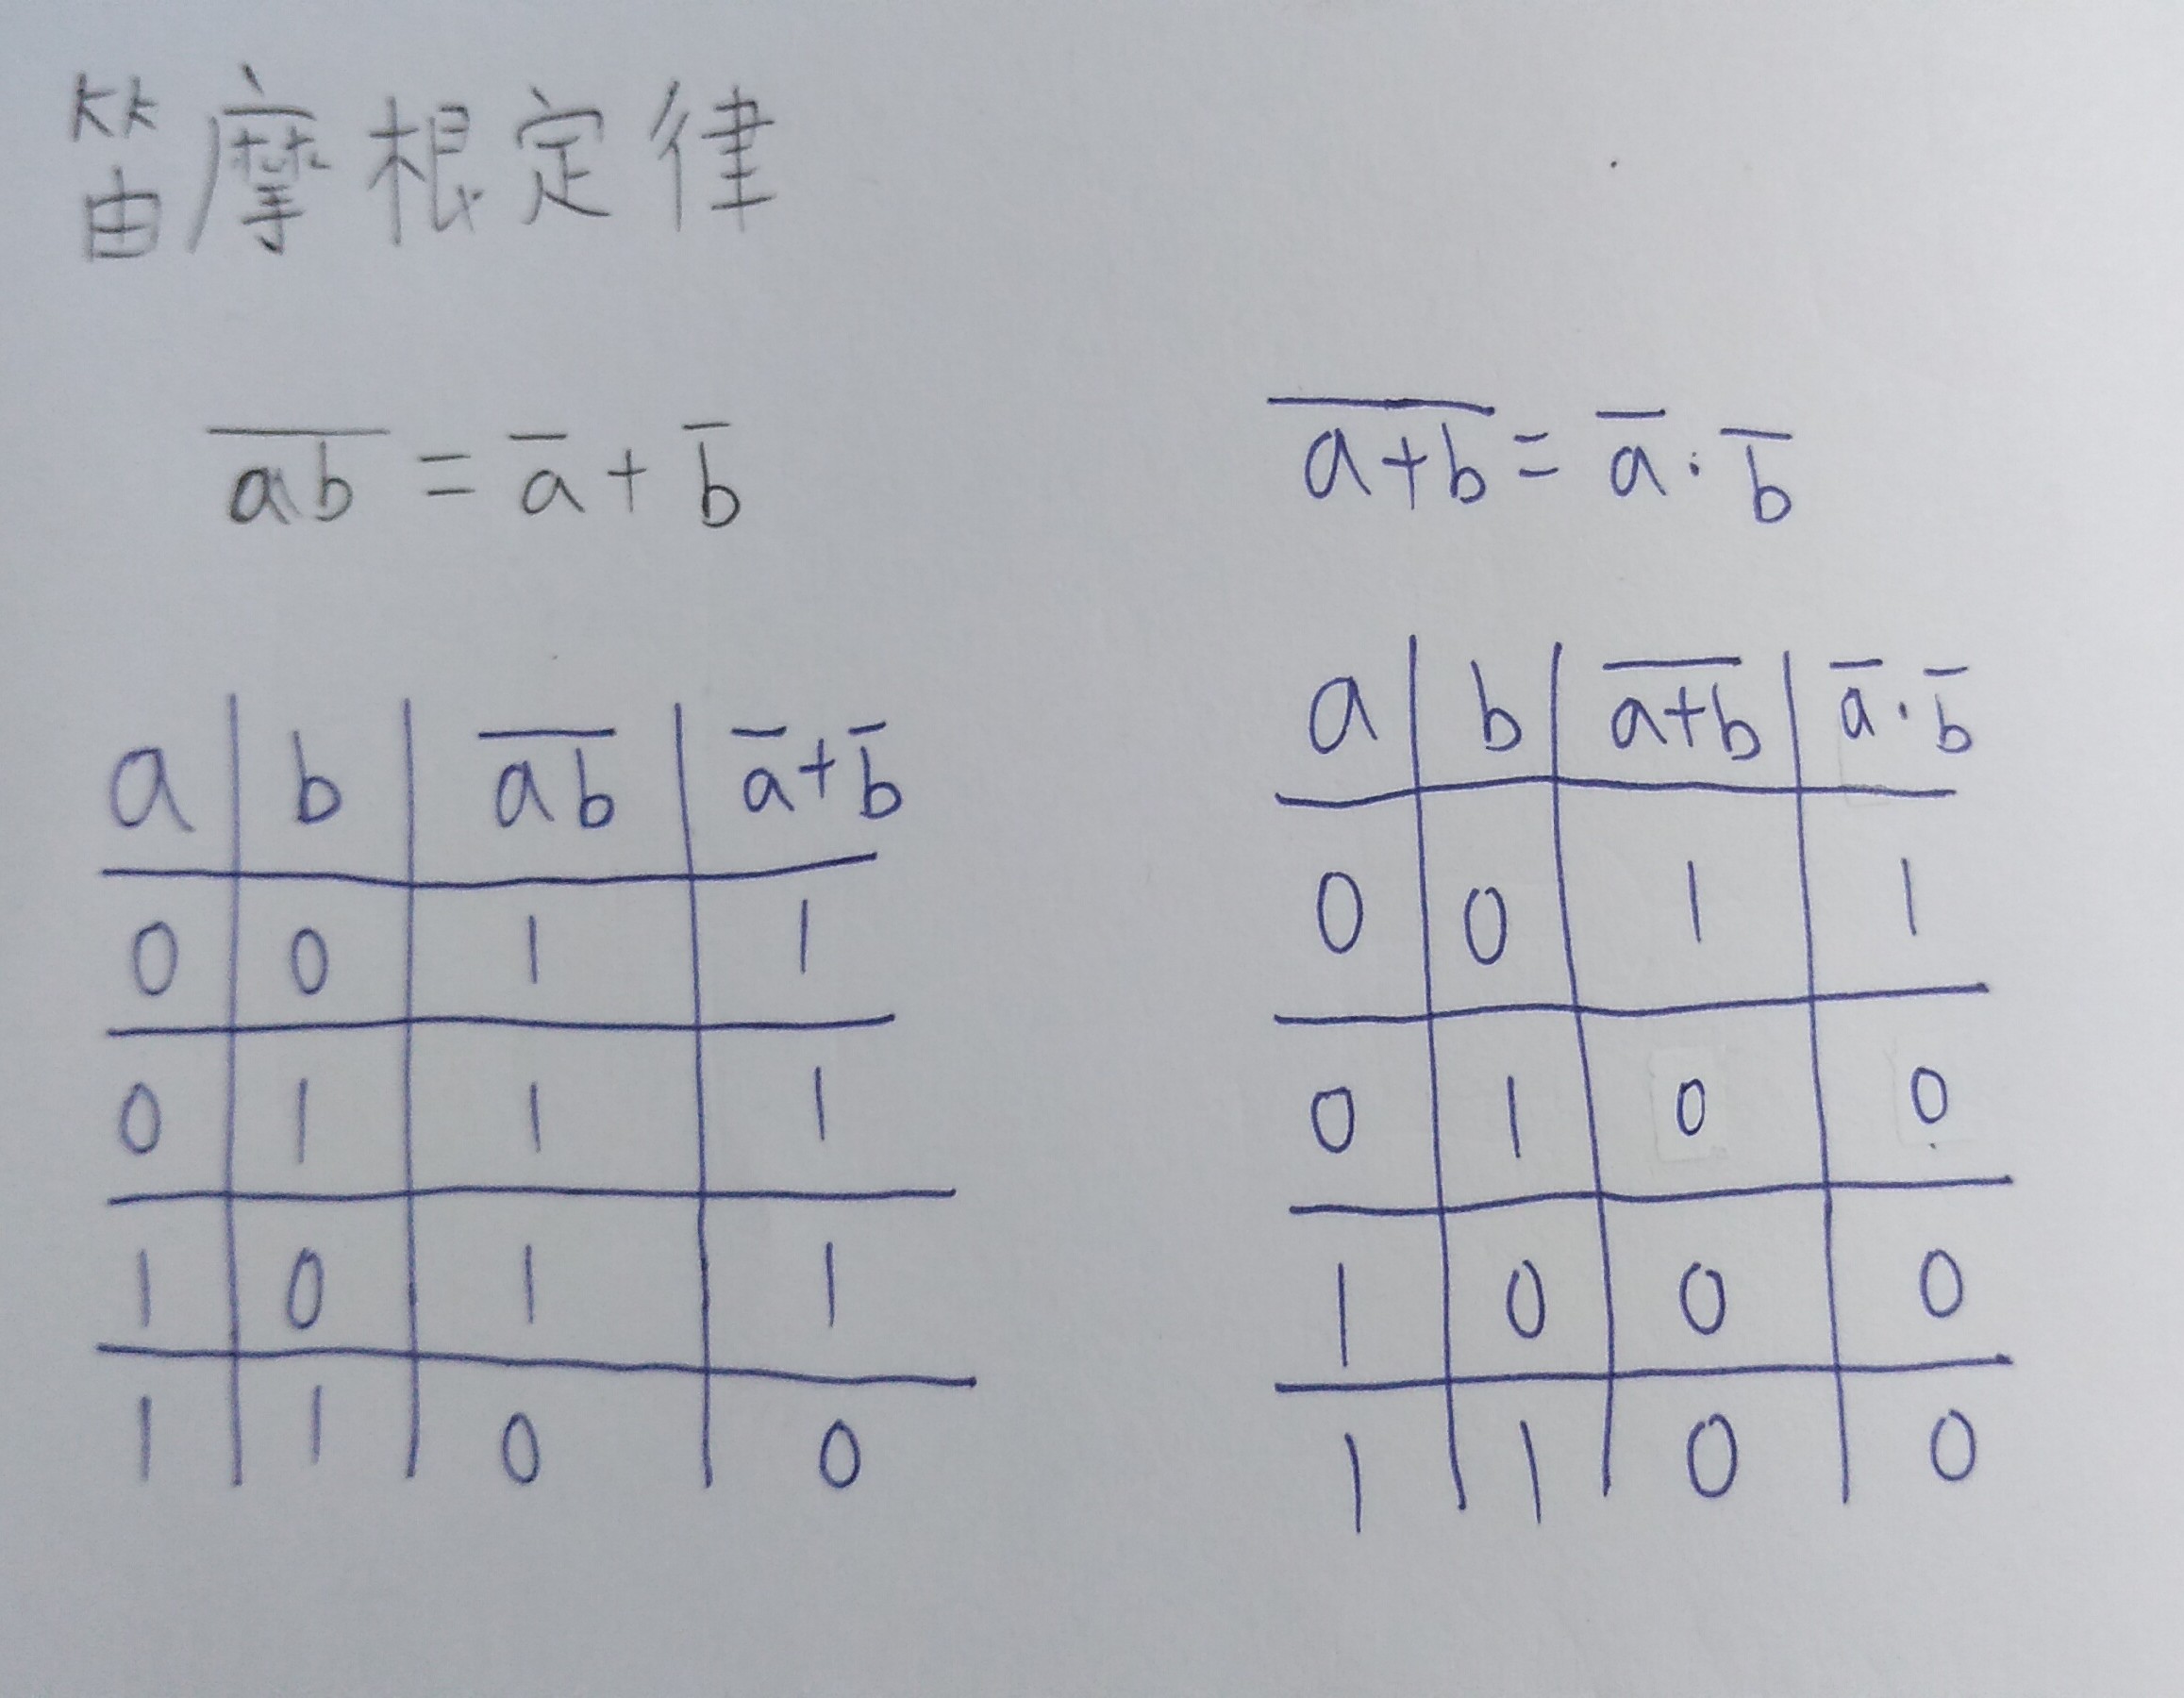 笛摩根定律
a̅b̅ = a̅ + b̅
a̅+̅b̅ = a̅ · b̅
a b a̅b̅ a̅+b̅
0 0 1 1
0 1 1 1
1 0 1 1
1 1 0 0
a b a̅+̅b̅ a̅·b̅
0 0 1 1
0 1 0 0
1 0 0 0
1 1 0 0